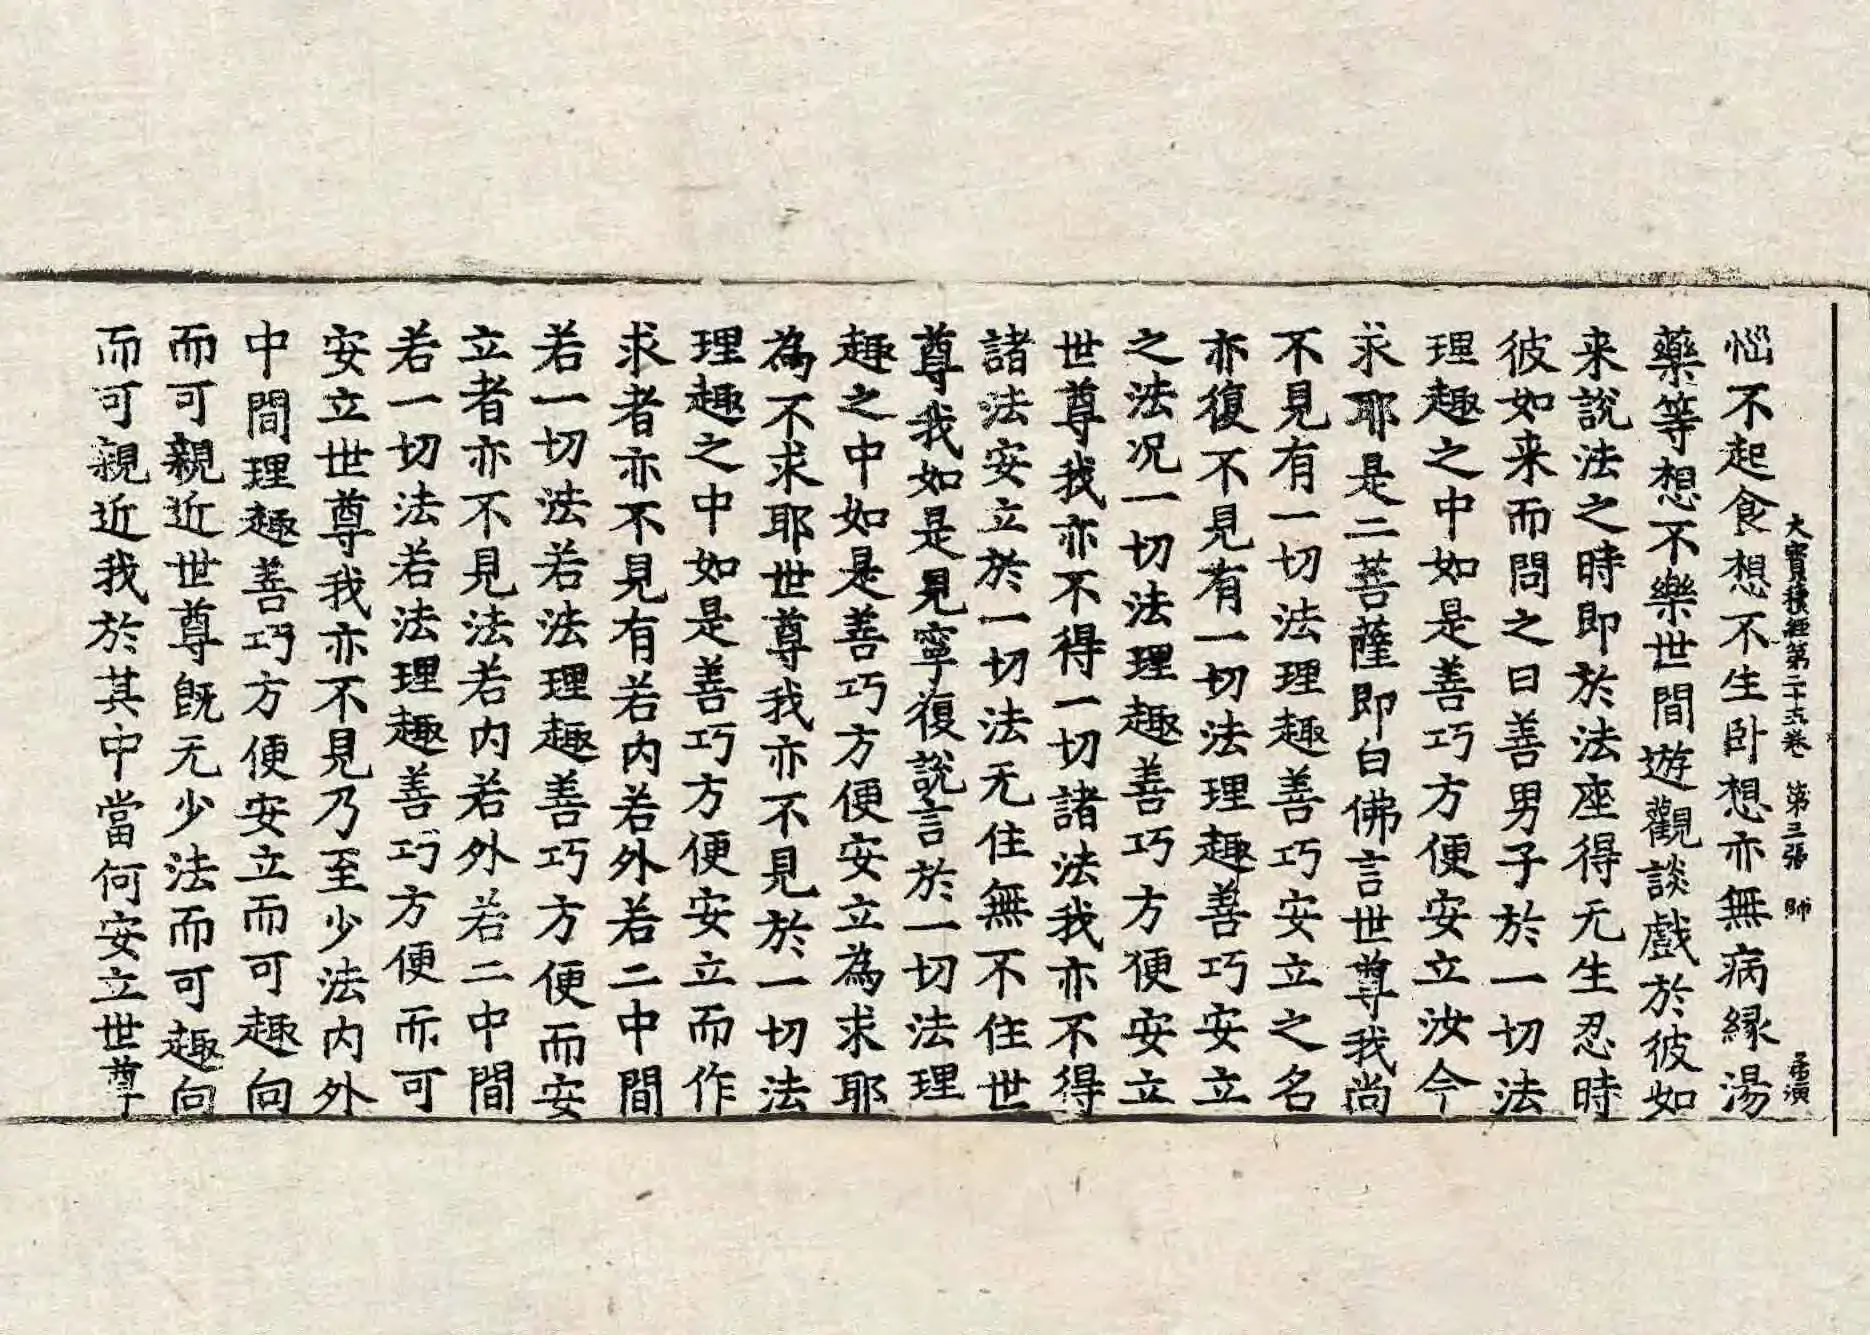 大寶積經第二十五卷 第三張 帥
惱不起食想不生卧想亦無病緣湯
藥等想不樂世間遊觀談戲於彼如
来說法之時即於法座得无生忍時
彼如来而問之曰善男子於一切法
理趣之中如是善巧方便安立汝今
求耶是二菩薩即白佛言世尊我尚
不見有一切法理趣善巧安立之名
亦復不見有一切法理趣善巧安立
之法况一切法理趣善巧方便安立
世尊我亦不得一切諸法我亦不得
諸法安立於一切法无住無不住世
尊我如是見寧復說言於一切法理
趣之中如是善巧方便安立為求耶
為不求耶世尊我亦不見於一切法
理趣之中如是善巧方便安立而作
求者亦不見有若内若外若二中間
若一切法若法理趣善巧方便而安
立者亦不見法若内若外若二中間
若一切法若法理趣善巧方便而可
安立世尊我亦不見乃至少法内外
中間理趣善巧方便安立而可趣向
而可親近世尊既无少法而可趣向
而可親近我於其中當何安立世尊